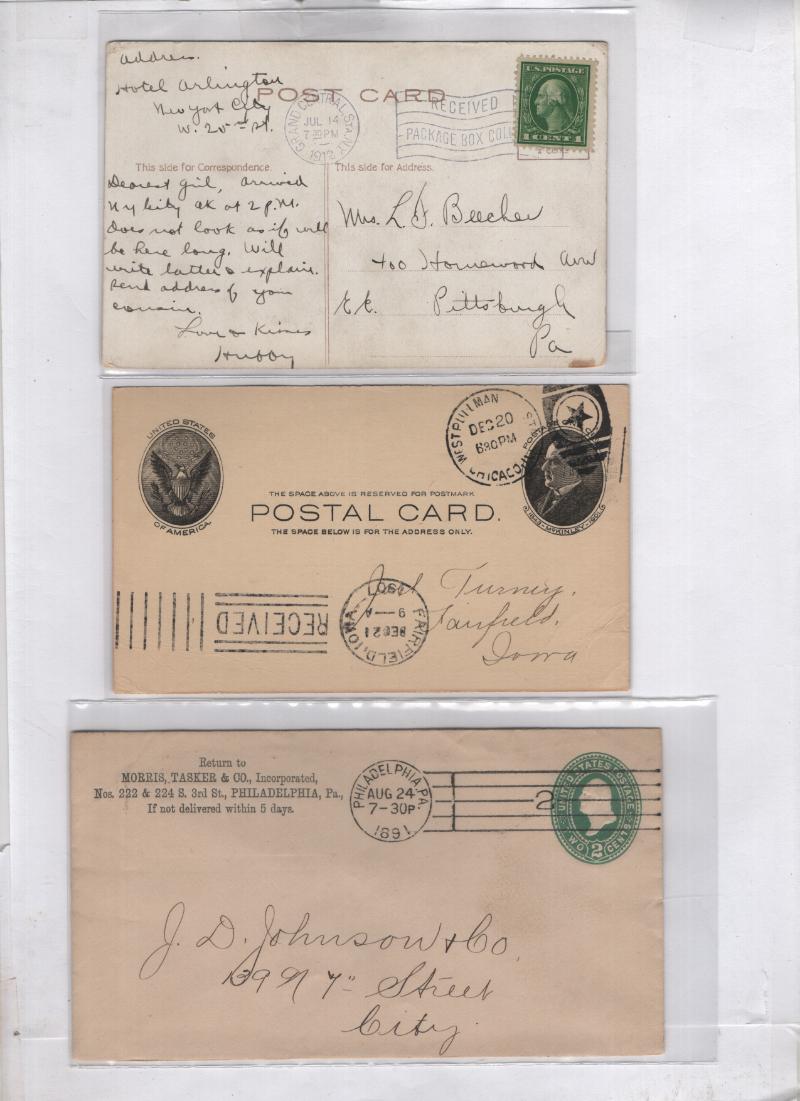 address.
Hotel Arlington
New York City
W. 25th St.
POST CARD
GRAND CENTRAL STA. N.Y.
JUL 14
7 30 PM
1912
RECEIVED
PACKAGE BOX COLL
U.S. POSTAGE
1 CENT 1
This side for Correspondence.
This side for Address.
Dearest girl, arrived
Ny City ok at 2 p.m.
Does not look as if will
be here long. Will
write latter & explain.
Send address of your
cousin.
Love & Kisses
Hubby
Mrs. L. F. Beecher
400 Homewood Ave
E.E. Pittsburgh
Pa
UNITED STATES
OF AMERICA
WEST PULLMAN
STA.
DEC 20
6 30 PM
CHICAGO, ILL
THE SPACE ABOVE IS RESERVED FOR POSTMARK
POSTAL CARD.
THE SPACE BELOW IS FOR THE ADDRESS ONLY.
Joel Turney.
Fairfield,
Iowa
RECEIVED
FAIRFIELD, IOWA
DEC 21
9-A
Return to
MORRIS, TASKER & CO., Incorporated,
Nos. 222 & 224 S. 3rd St., PHILADELPHIA, Pa.,
If not delivered within 5 days.
PHILADELPHIA, PA.
AUG 24
7-30P
1891
2
UNITED STATES POSTAGE
TWO 2 CENTS
J. D. Johnson & Co,
139 N 7" Street
City.